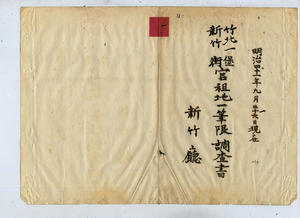 明治四十一年九月三十日現在
竹北一堡
新竹街官租地一筆限調査書
新竹廳